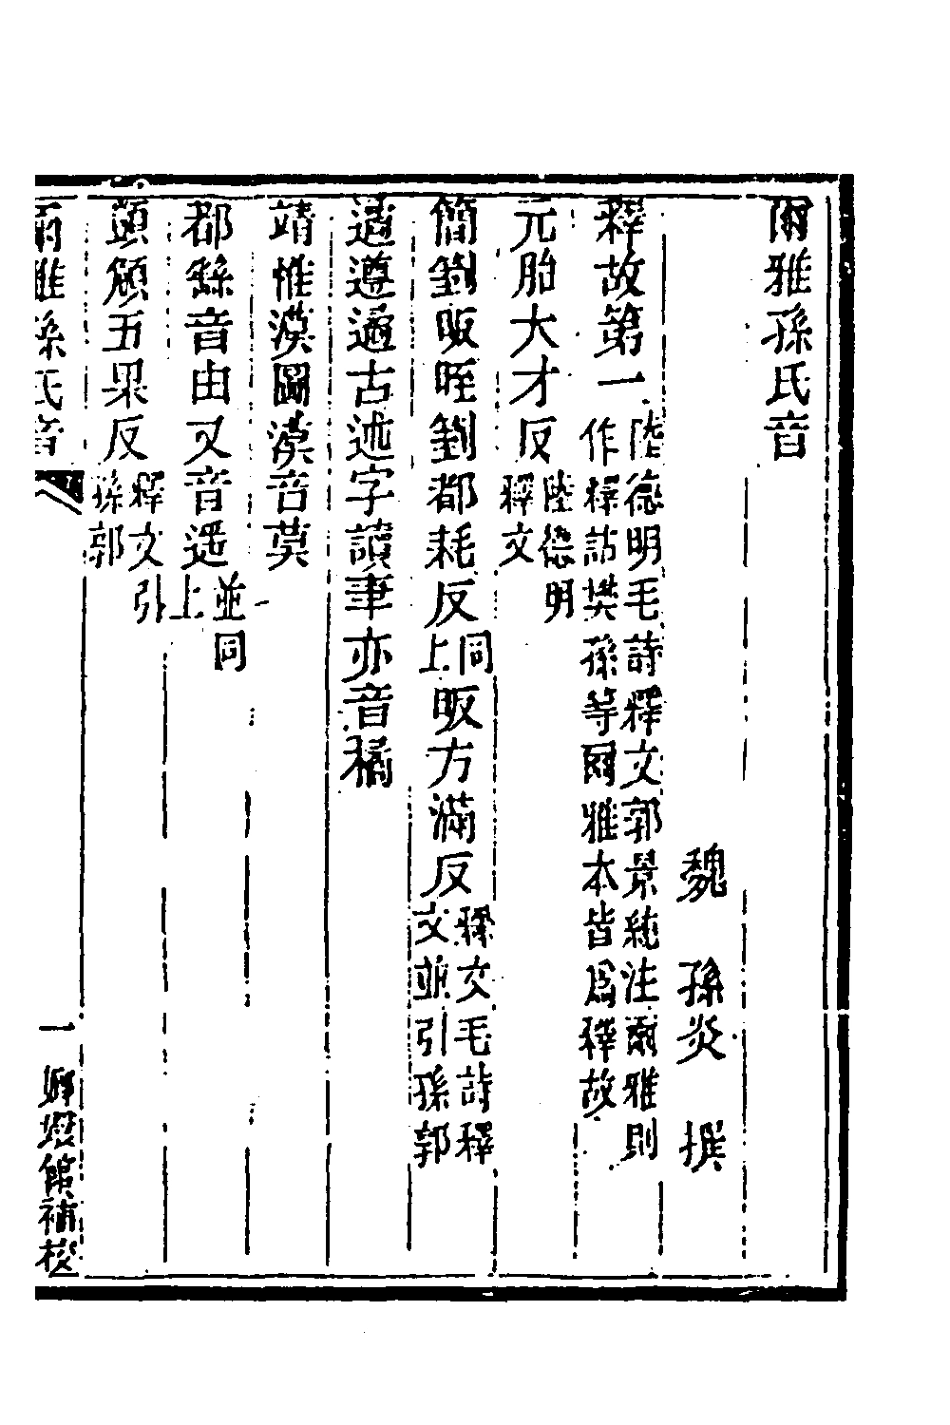 爾雅孫氏音
魏　孫炎　撰
釋故第一 陸德明毛詩釋文郭景純注爾雅則
作釋詁樊孫等爾雅本皆爲釋故
元胎大才反 陸德明
釋文
簡箌昄晊箌都耗反 同
上 昄方滿反 釋文毛詩釋
文並引孫郭
遹遵遹古述字讀聿亦音橘
靖惟漠圖漠音莫
郡繇音由又音遥 並同
上
顗頠五果反 釋文引
孫郭
爾雅孫氏音　一　嫏嬛館補校